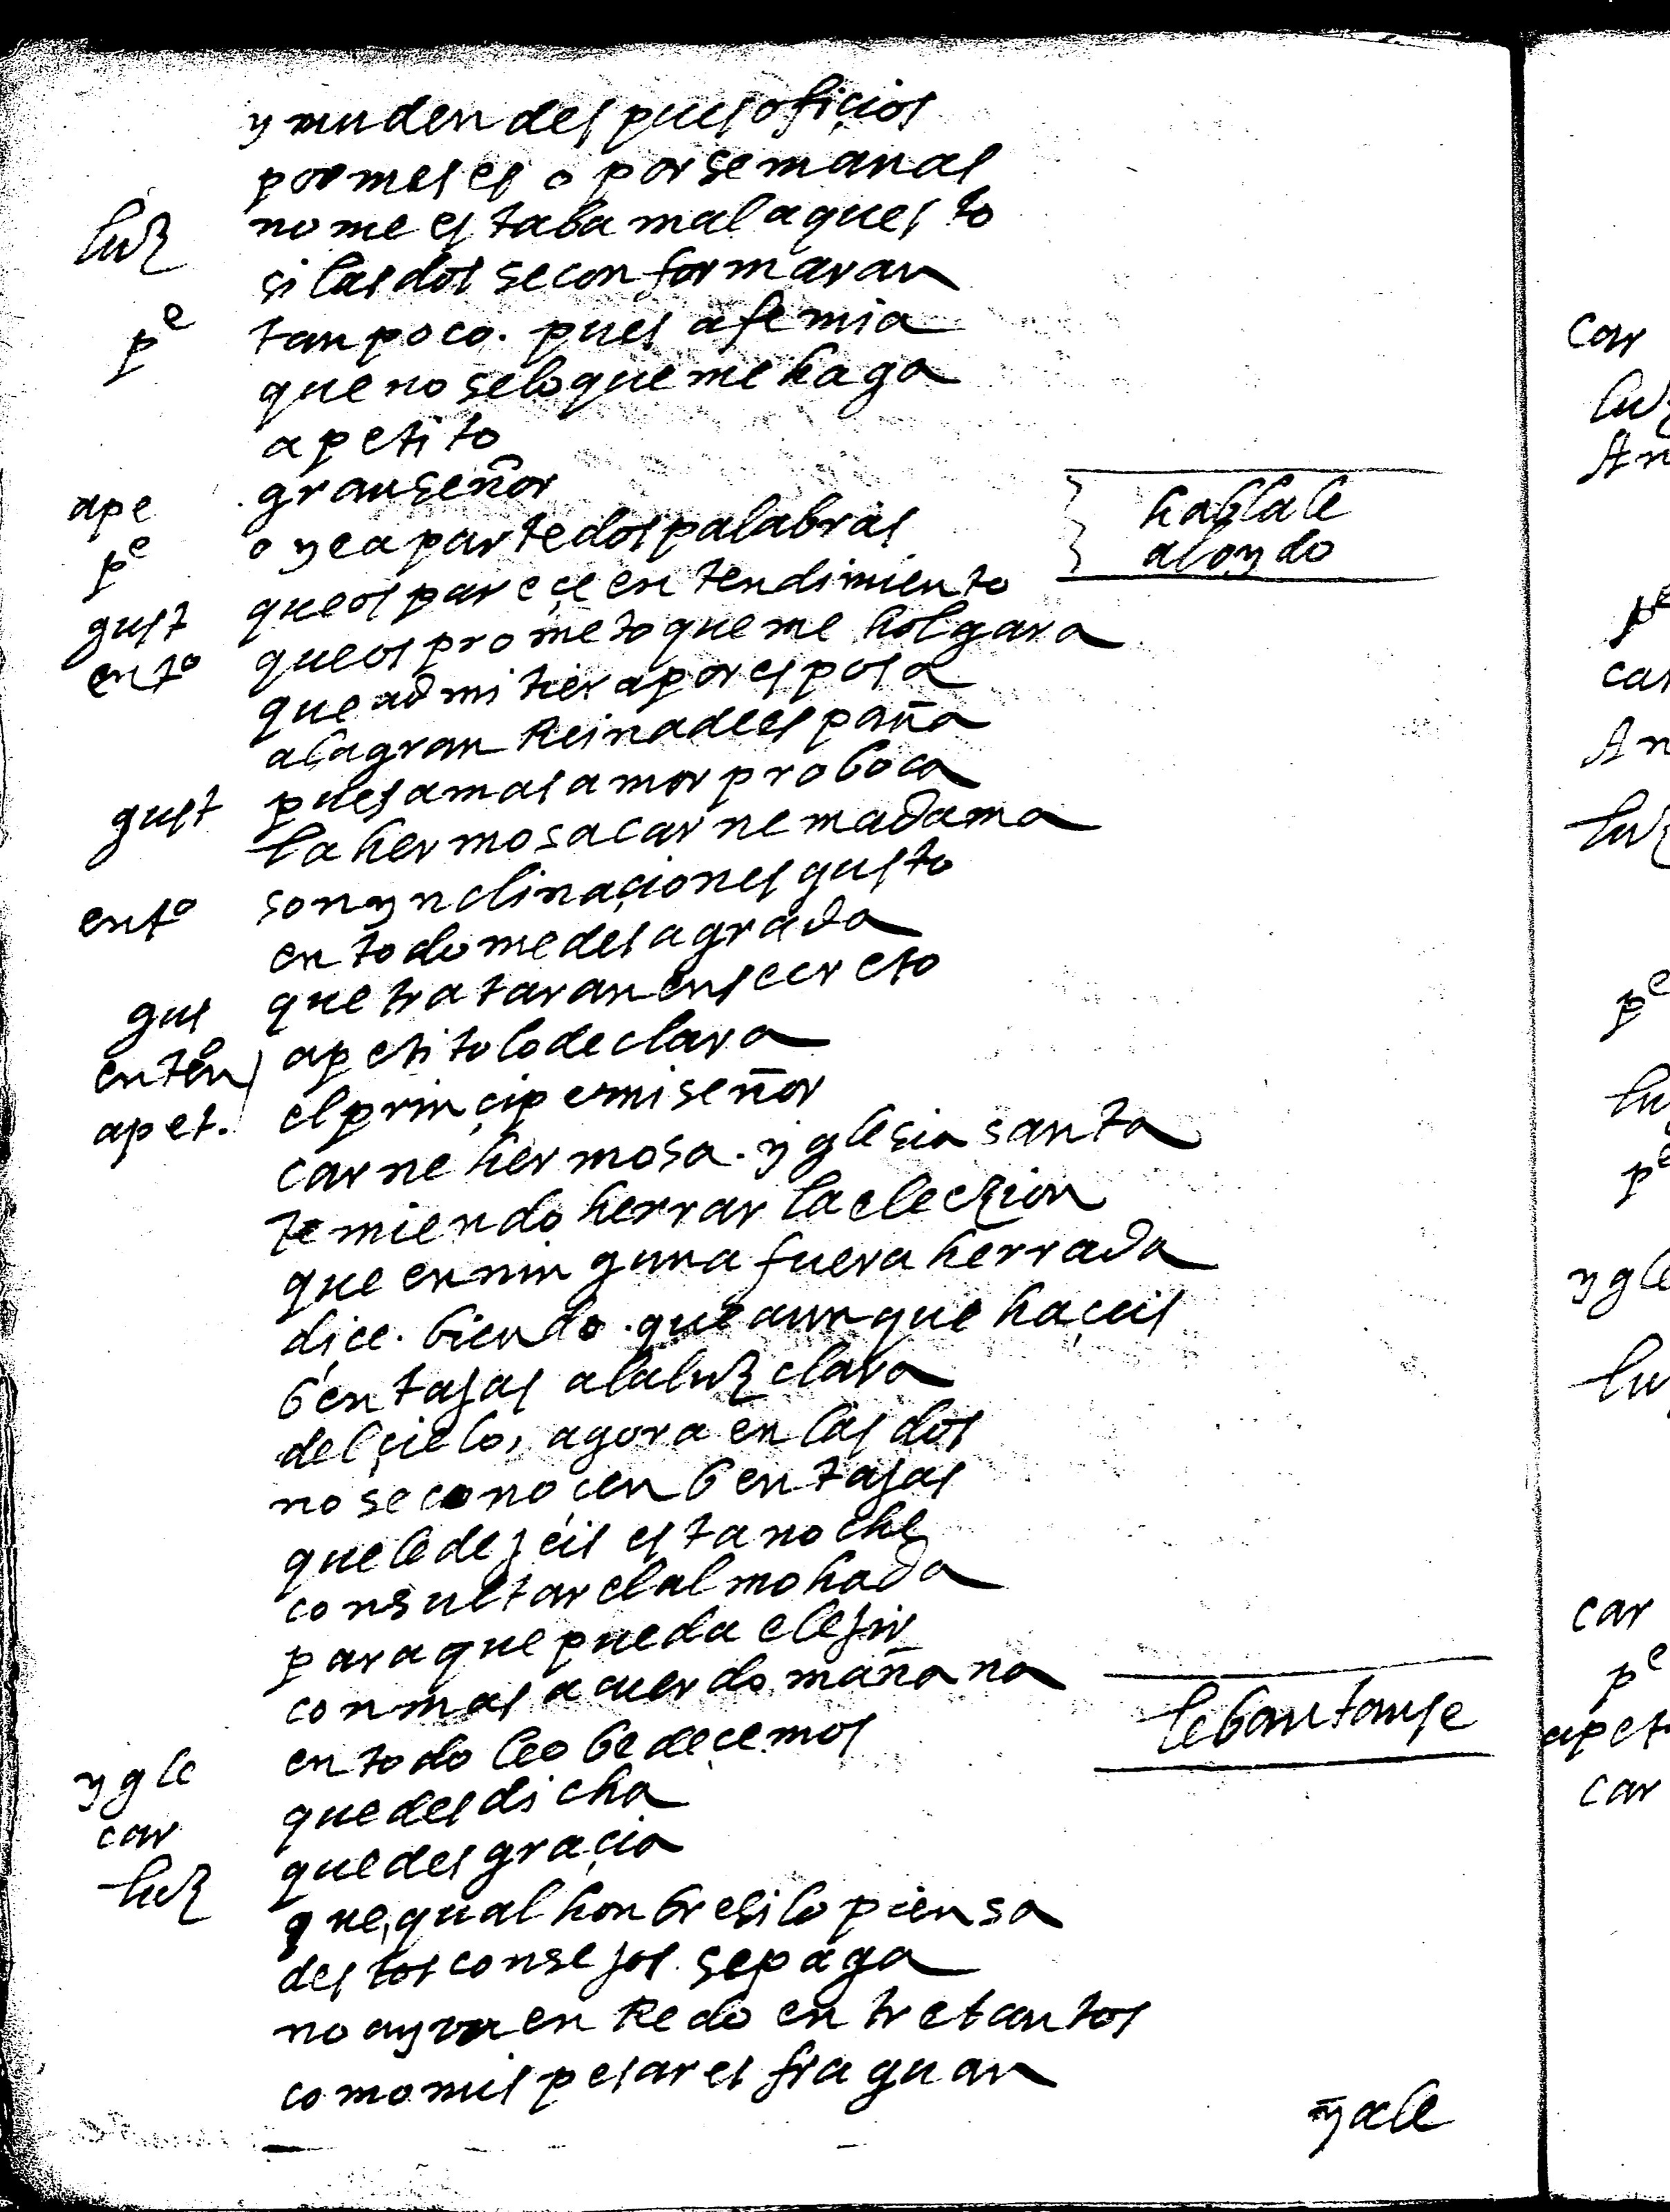 y muden despues ofiçios
por meses o por semanas
luz no me estaba mal aquesto
si las dos se conformaran
pe tanpoco. pues a fe mia
que no se lo que me haga
apetito
ape gran señor
pe oye aparte dos palabras
hablale
al oydo
gust que os pareçe entendimiento
ento que os prometo que me holgara
que admitiera por esposa
a la gran Reina de españa
gust pues a mas amor proboca
la hermosa carne madama
ento son ynclinaçiones gusto
en todo me desagrada
gus que trataran en secreto
enten apetito lo declara
apet. el prinçipe mi señor
carne hermosa. yglesia santa
temiendo herrar la eleczion
que en ninguna fuera herrada
diçe. biendo. que aunque haçeis
bentajas a la luz clara
del çielo, agora en las dos
no se conoçen bentajas
que le dejeis esta noche
consultar el almohada
para que pueda elejir
con mas acuerdo mañana
ygle en todo le obedeçemos
lebantanse
car que desdicha
luz que desgraçia
que, qual honbre si lo piensa
destos consejos. se paga
no ay un enRedo entre tantos
como mis pesares fraguan
yale
car
luz
An
pe
car
An
luz
pe
lu
pe
ygle
lu
car
pe
apet
car